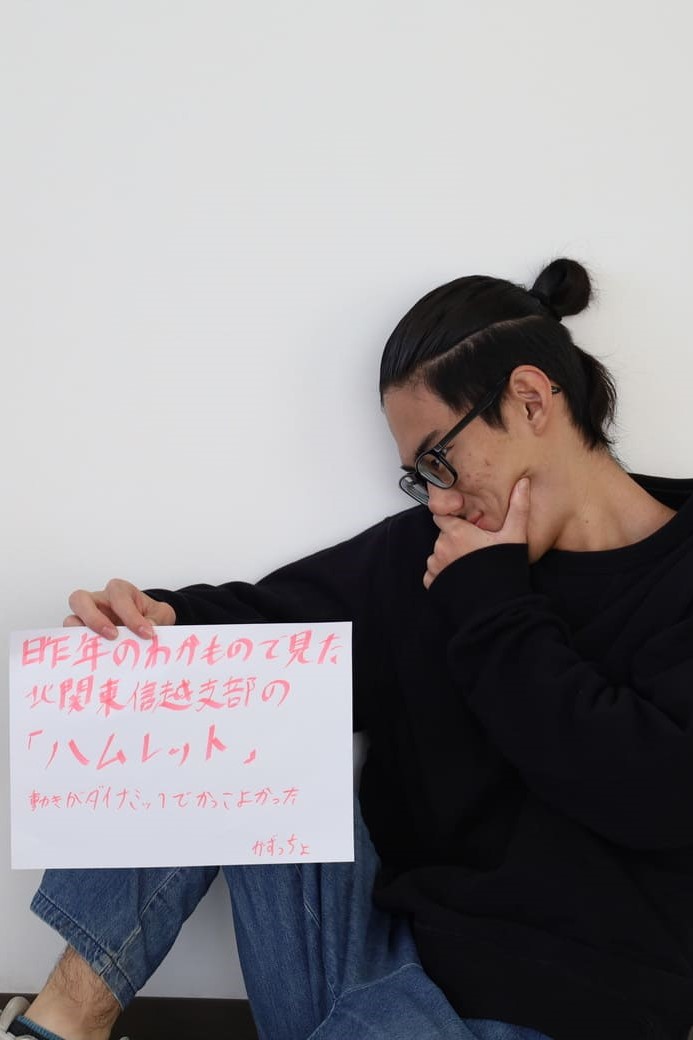 昨年のわかもので見た
北関東信越支部の
「ハムレット」
動きがダイナミックでかっこよかった
かずっちょ